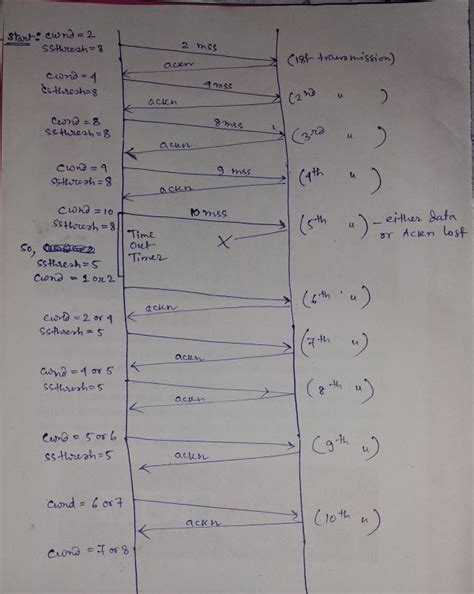 Start: cwnd = 2
ssthresh = 8
2 mss
ackn
(1st transmission)
cwnd = 4
ssthresh = 8
4 mss
ackn
(2nd " )
cwnd = 8
ssthresh = 8
8 mss
ackn
(3rd " )
cwnd = 9
ssthresh = 8
9 mss
ackn
(4th " )
cwnd = 10
ssthresh = 8
10 mss
(5th " ) - either data
or Ackn lost
Time
Out
Timer
So,
ssthresh = 5
cwnd = 1 or 2
ackn
(6th " )
cwnd = 2 or 4
ssthresh = 5
ackn
(7th " )
cwnd = 4 or 5
ssthresh = 5
ackn
(8th " )
cwnd = 5 or 6
ssthresh = 5
ackn
(9th " )
cwnd = 6 or 7
ackn
(10th " )
cwnd = 7 or 8